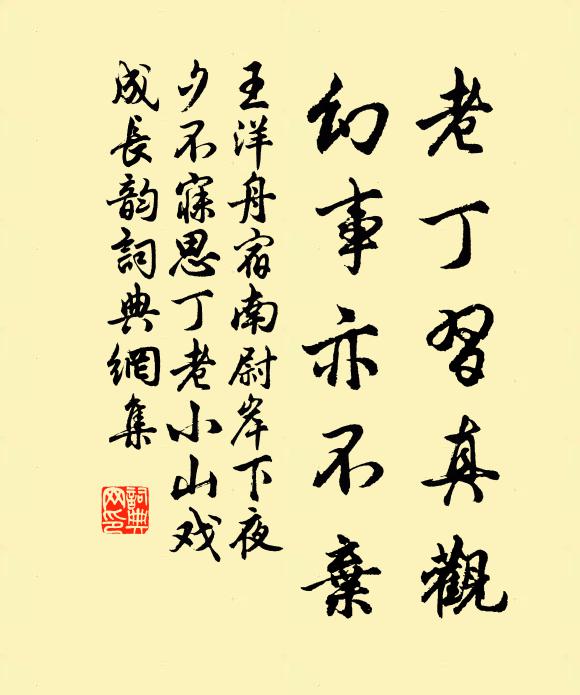 老丁習真觀
幻事亦不棄
王洋舟宿南尉岸下夜
夕不寐思丁老小山戏
成長韵詞典網集
詞典
网印